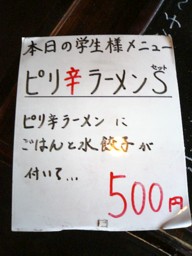 本日の学生様メニュー
ピリ辛ラーメンSセット
ピリ辛ラーメンに
ごはんと水餃子が
付いて...
500円